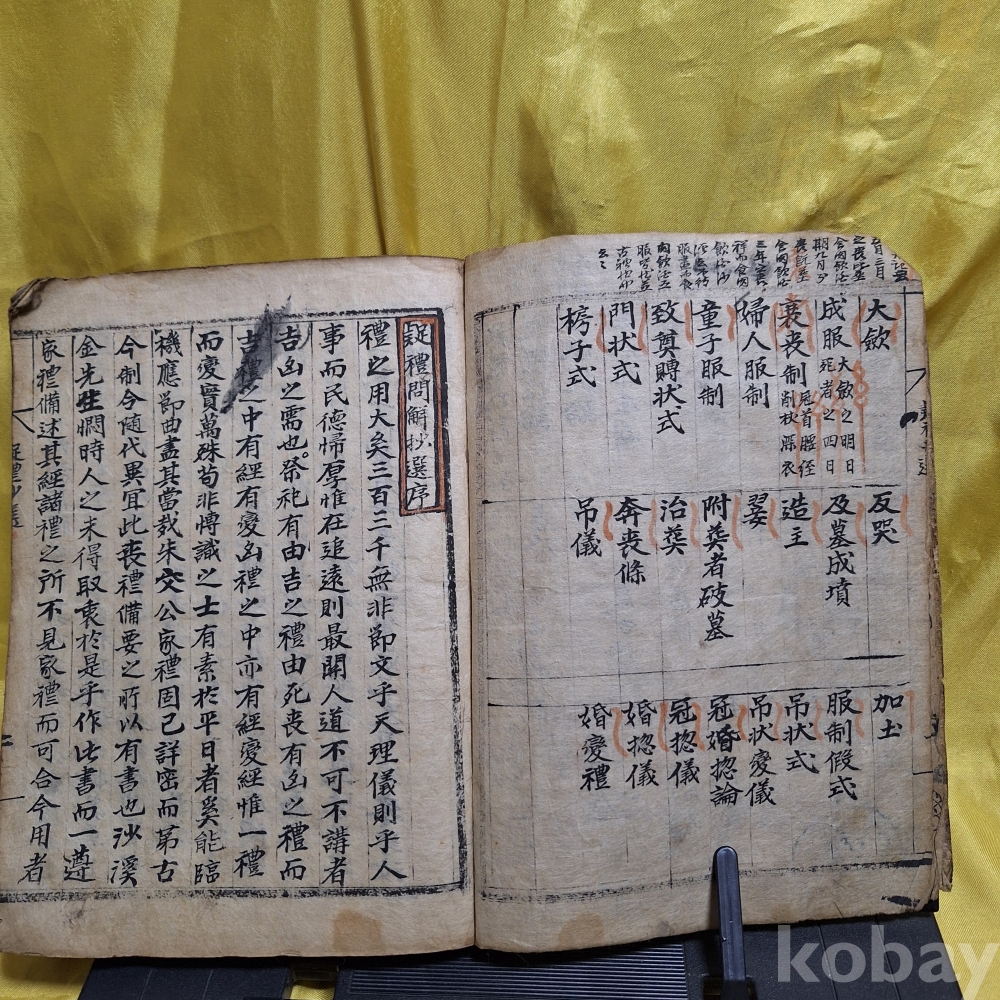 大斂
成服 大斂之明日 死者之四日
衰喪制
婦人服制
童子服制
致奠賻状式
門状式
榜子式
反哭
及墓成墳
造主
翣
附葬者破墓
治葬
奔喪條
吊儀
加土
服制假式
吊状式
吊状変儀
冠婚揔論
冠揔儀
婚揔儀
婚変禮
疑禮問解抄選序
禮之用大矣三百三千無非節文乎天理儀則乎人
事而民德歸厚惟在追遠則最開人道不可不講者
吉凶之需也祭祀有由吉之禮由死喪有凶之禮而
吉禮之中有經有變凶禮之中亦有經變經惟一禮
而變實萬殊苟非博識之士有素於平日者奚能臨
機應節曲盡其當哉朱文公家禮固已詳密而第古
今制令随代異宜此喪禮備要之所以有書也沙溪
金先生憫時人之未得取衷於是乎作此書而一遵
家禮備述其經諸禮之所不見家禮而可合今用者
kobay